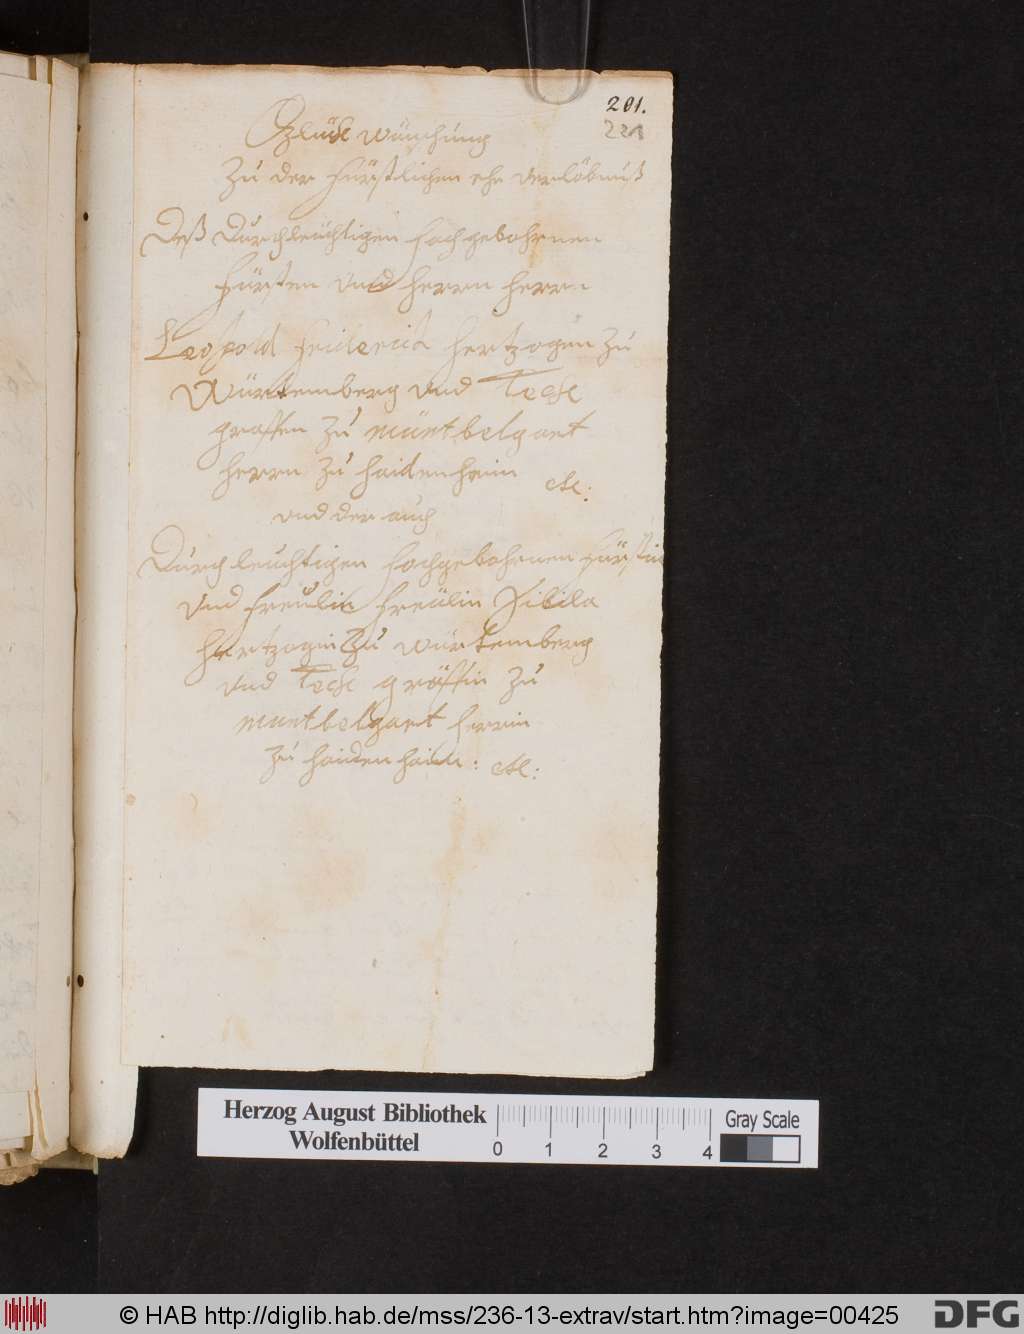 201.
221
Glück wünschung
Zu der Fürstlichen ehe verlöbnuß
Deß Durchleuchtigen hochgebohrnen
Fürsten vnd herrn herrn
Leopold Friderich hertzogen zu
Würtemberg vnd Teck
graffen zu müntbelgart
herrn zu haidenheim etc:
vnd der auch
Durchleuchtigen hochgebohrnen Fürstin
vnd freulin freülin Sibila
hertzogin Zu würtemberg
vnd Teck gräffin zu
muntbelgart herrin
zu haidenhaim: etc:
Herzog August Bibliothek
Wolfenbüttel
0 1 2 3 4
Gray Scale
© HAB http://diglib.hab.de/mss/236-13-extrav/start.htm?image=00425
DFG